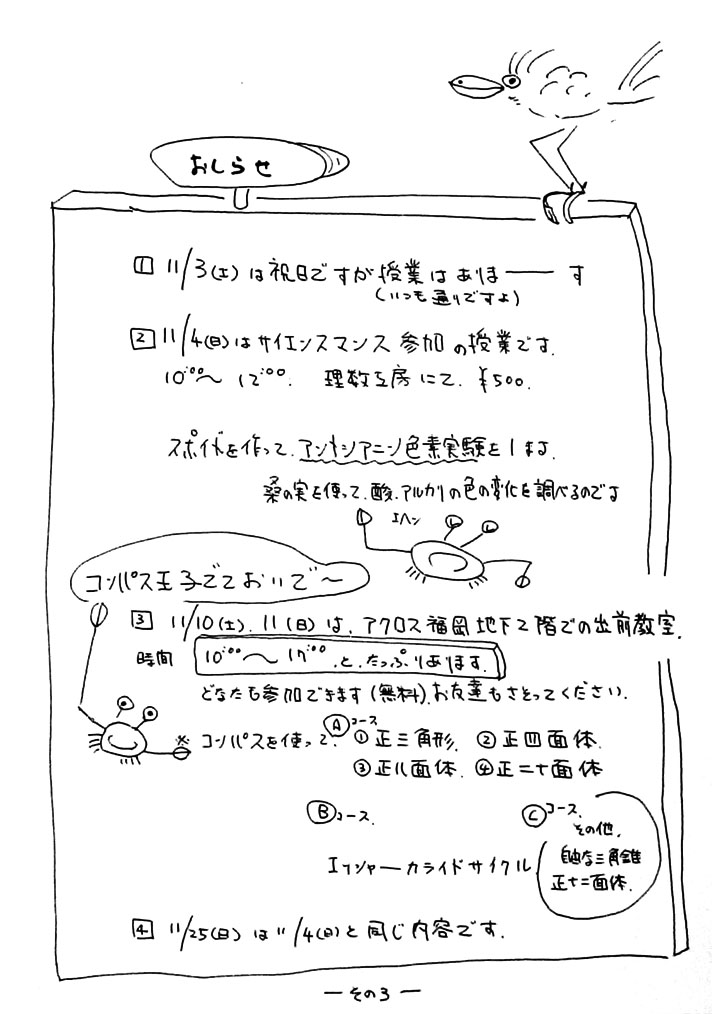 おしらせ
1 11/3(土)は祝日ですが授業はありま――す
(いつも通りですよ)
2 11/4(日)はサイエンスマンス参加の授業です.
10:00～12:00. 理数工房にて. ¥500.
スポイトを作って.アントシアニン色素実験をします.
桑の実を使って.酸.アルカリの色の変化を調べるのです
エヘン
コンパス王子でておいで～
3 11/10(土).11(日)は.アクロス福岡地下2階での出前教室.
時間 10:00～17:00 と.たっぷりあります.
どなたも参加できます(無料).お友達もさそってください.
※ コンパスを使って. Aコース ①正三角形. ②正四面体.
③正八面体. ④正二十面体
Bコース. Cコース.
その他.
エッシャーカライドサイクル 自由な三角錐
正十二面体.
4 11/25(日)は11/4(日)と同じ内容です.
― その3 ―